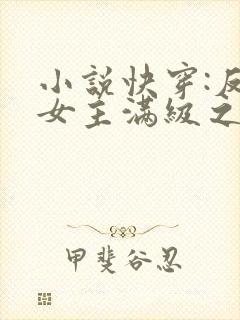 小說快穿:反
女主滿級之
甲斐谷忍